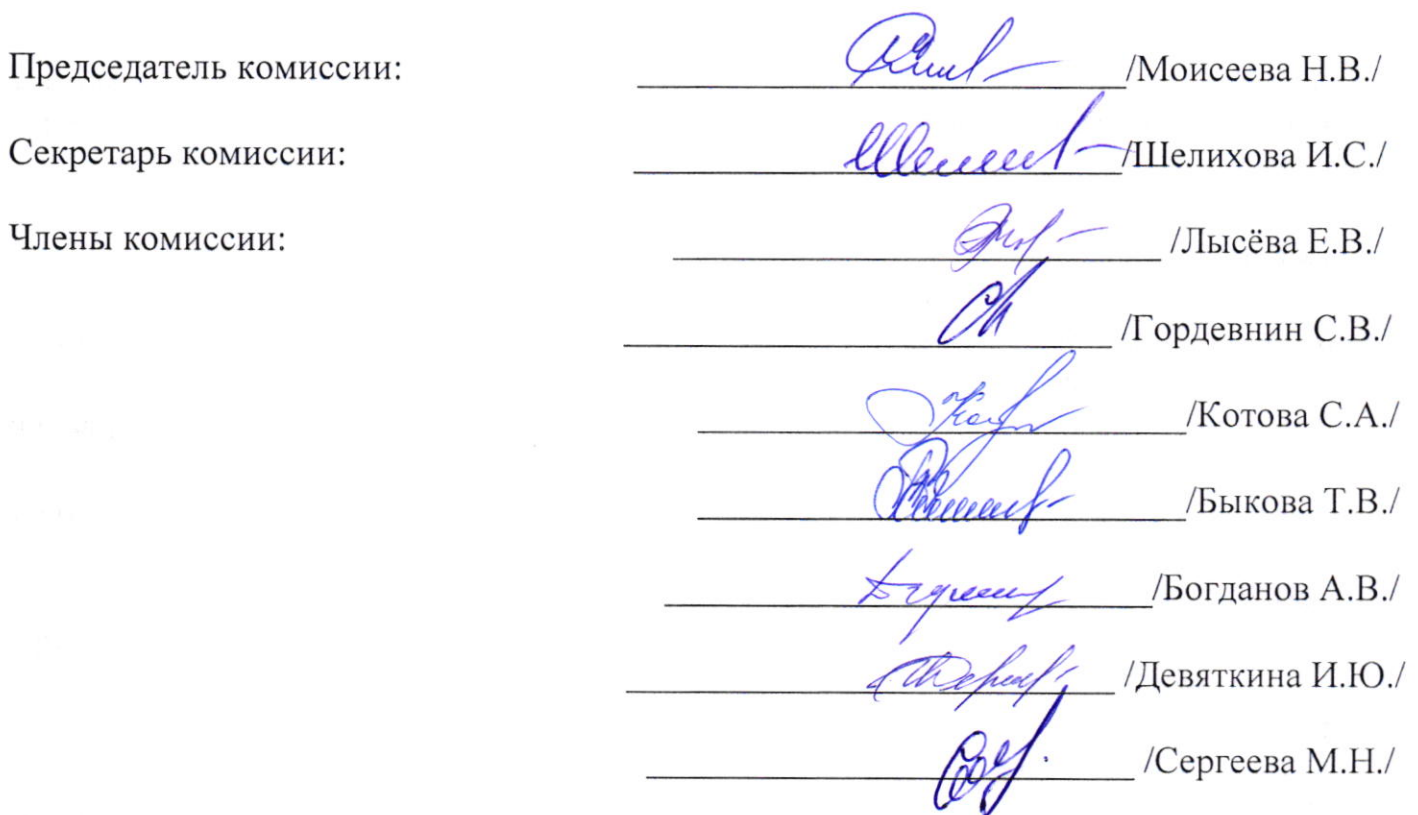 Председатель комиссии: /Моисеева Н.В./
Секретарь комиссии: /Шелихова И.С./
Члены комиссии: /Лысёва Е.В./
/Гордевнин С.В./
/Котова С.А./
/Быкова Т.В./
/Богданов А.В./
/Девяткина И.Ю./
/Сергеева М.Н./